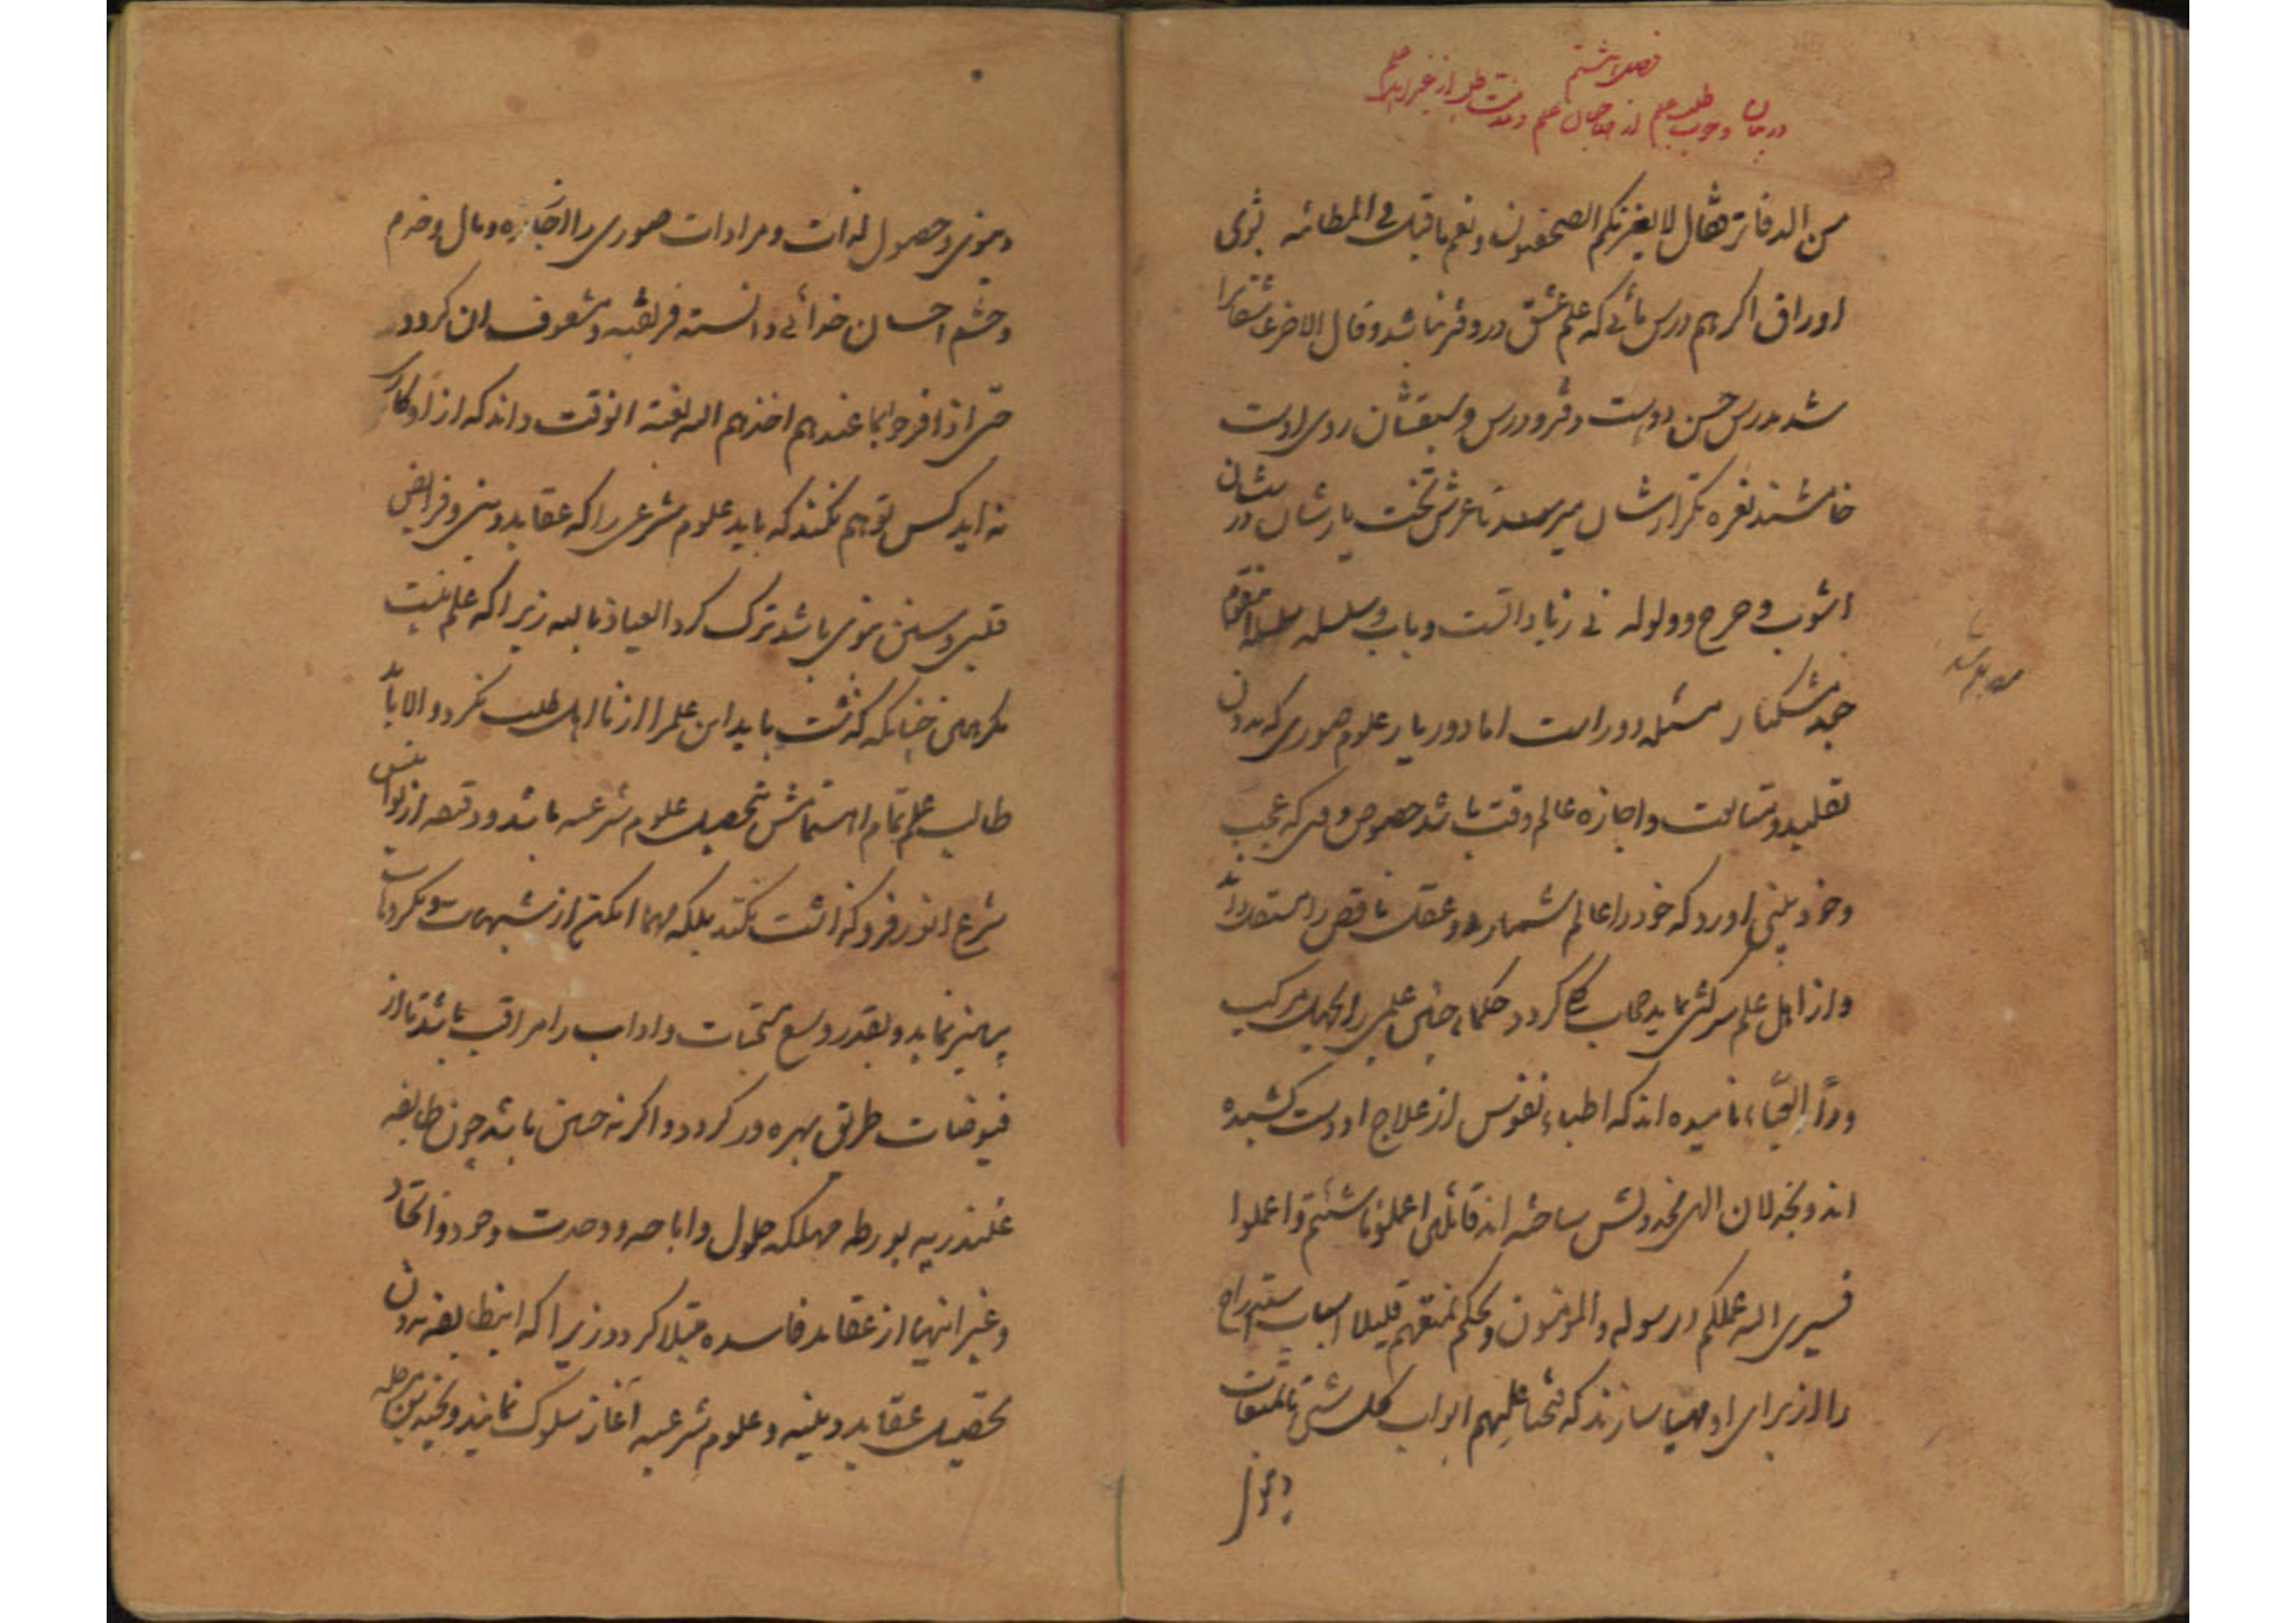 فصل هشتم
در بیان وجوب طلب علم از صاحبان علم و مذمت طلب از غیر اهل علم
من الدفاتر فقال لا یغرنکم الصحفیون و نعم ما قیل فی المطائبه بشوی
اوراق اگر هم درس مائی که علم عشق در دفتر نباشد و قال الاخر عاشقانرا
شد مدرس حسن دوست دفتر و درس و سبقشان روی اوست
خامشند نعره تکرارشان میرسد تا عرش تخت یارشان درسشان
اشوب و چرخ و ولوله نی زیاداتست و باب و سلسله سلسله این قوم
جعد مشکبار مسئله دور است اما دور یار علوم صوری که بدون
تقلید و متابعت و اجازه عالم وقت باشد خصوص وقتی که عجب
و خود بینی اورد که خود را عالم شمارد و عقل ناقص را مستقل داند
و از اهل علم سرکشی نماید حجاب گردد حکما چنین علمی را جهل مرکب
و داء العیاء نامیده اند که اطباء نفوس از علاج او دست کشیده
اند و بخذلان الهی مخذولش ساخته اند قائلین اعملوا ما شئتم و اعملوا
فسیری الله عملکم و رسوله و المؤمنون و بحکم نمتعهم قلیلا اسباب استدراج
را از برای او مهیا سازند که فتحنا علیهم ابواب کل شئ تا تمتعات
دنیوی
دنیوی و حصول لذات و مرادات صوری را از جاه و مال و خدم
و حشم احسان خدائی دانسته فریفته و مشعوف ان گردد
حتی اذا فرحوا بما عندهم اخذهم الله بغتة انوقت داند که از او مکار
نه اید کس توهم نکند که باید علوم شرعی را که عقاید دینی و فرایض
قلبی و سنن نبوی باشد ترک کرد العیاذ بالله زیرا که علم نیست
مگر همین چنانکه گذشت باید این علم را از نا اهل طلب نکرد و الا باید
طالب علم تمام اهتمامش تحصیل علوم شرعیه باشد و دقیقه از نوامیس
شرع انور فرو گذاشت نکند بلکه مهما امکن از شبهات و مکروهات
پرهیز نماید و بقدر وسع مستحبات و اداب را مراقب باشد تا از
فیوضات طریق بهره ور گردد و اگر نه چنین باشد چون طایفه
قلندریه بورطه مهلکه حلول و اباحه و وحدت وجود و اتحاد
و غیر اینها از عقاید فاسده مبتلا گردد زیرا که اینطایفه بدون
تحصیل عقاید دینیه و علوم شرعیه آغاز سلوک نمایند و بچندین مرحله